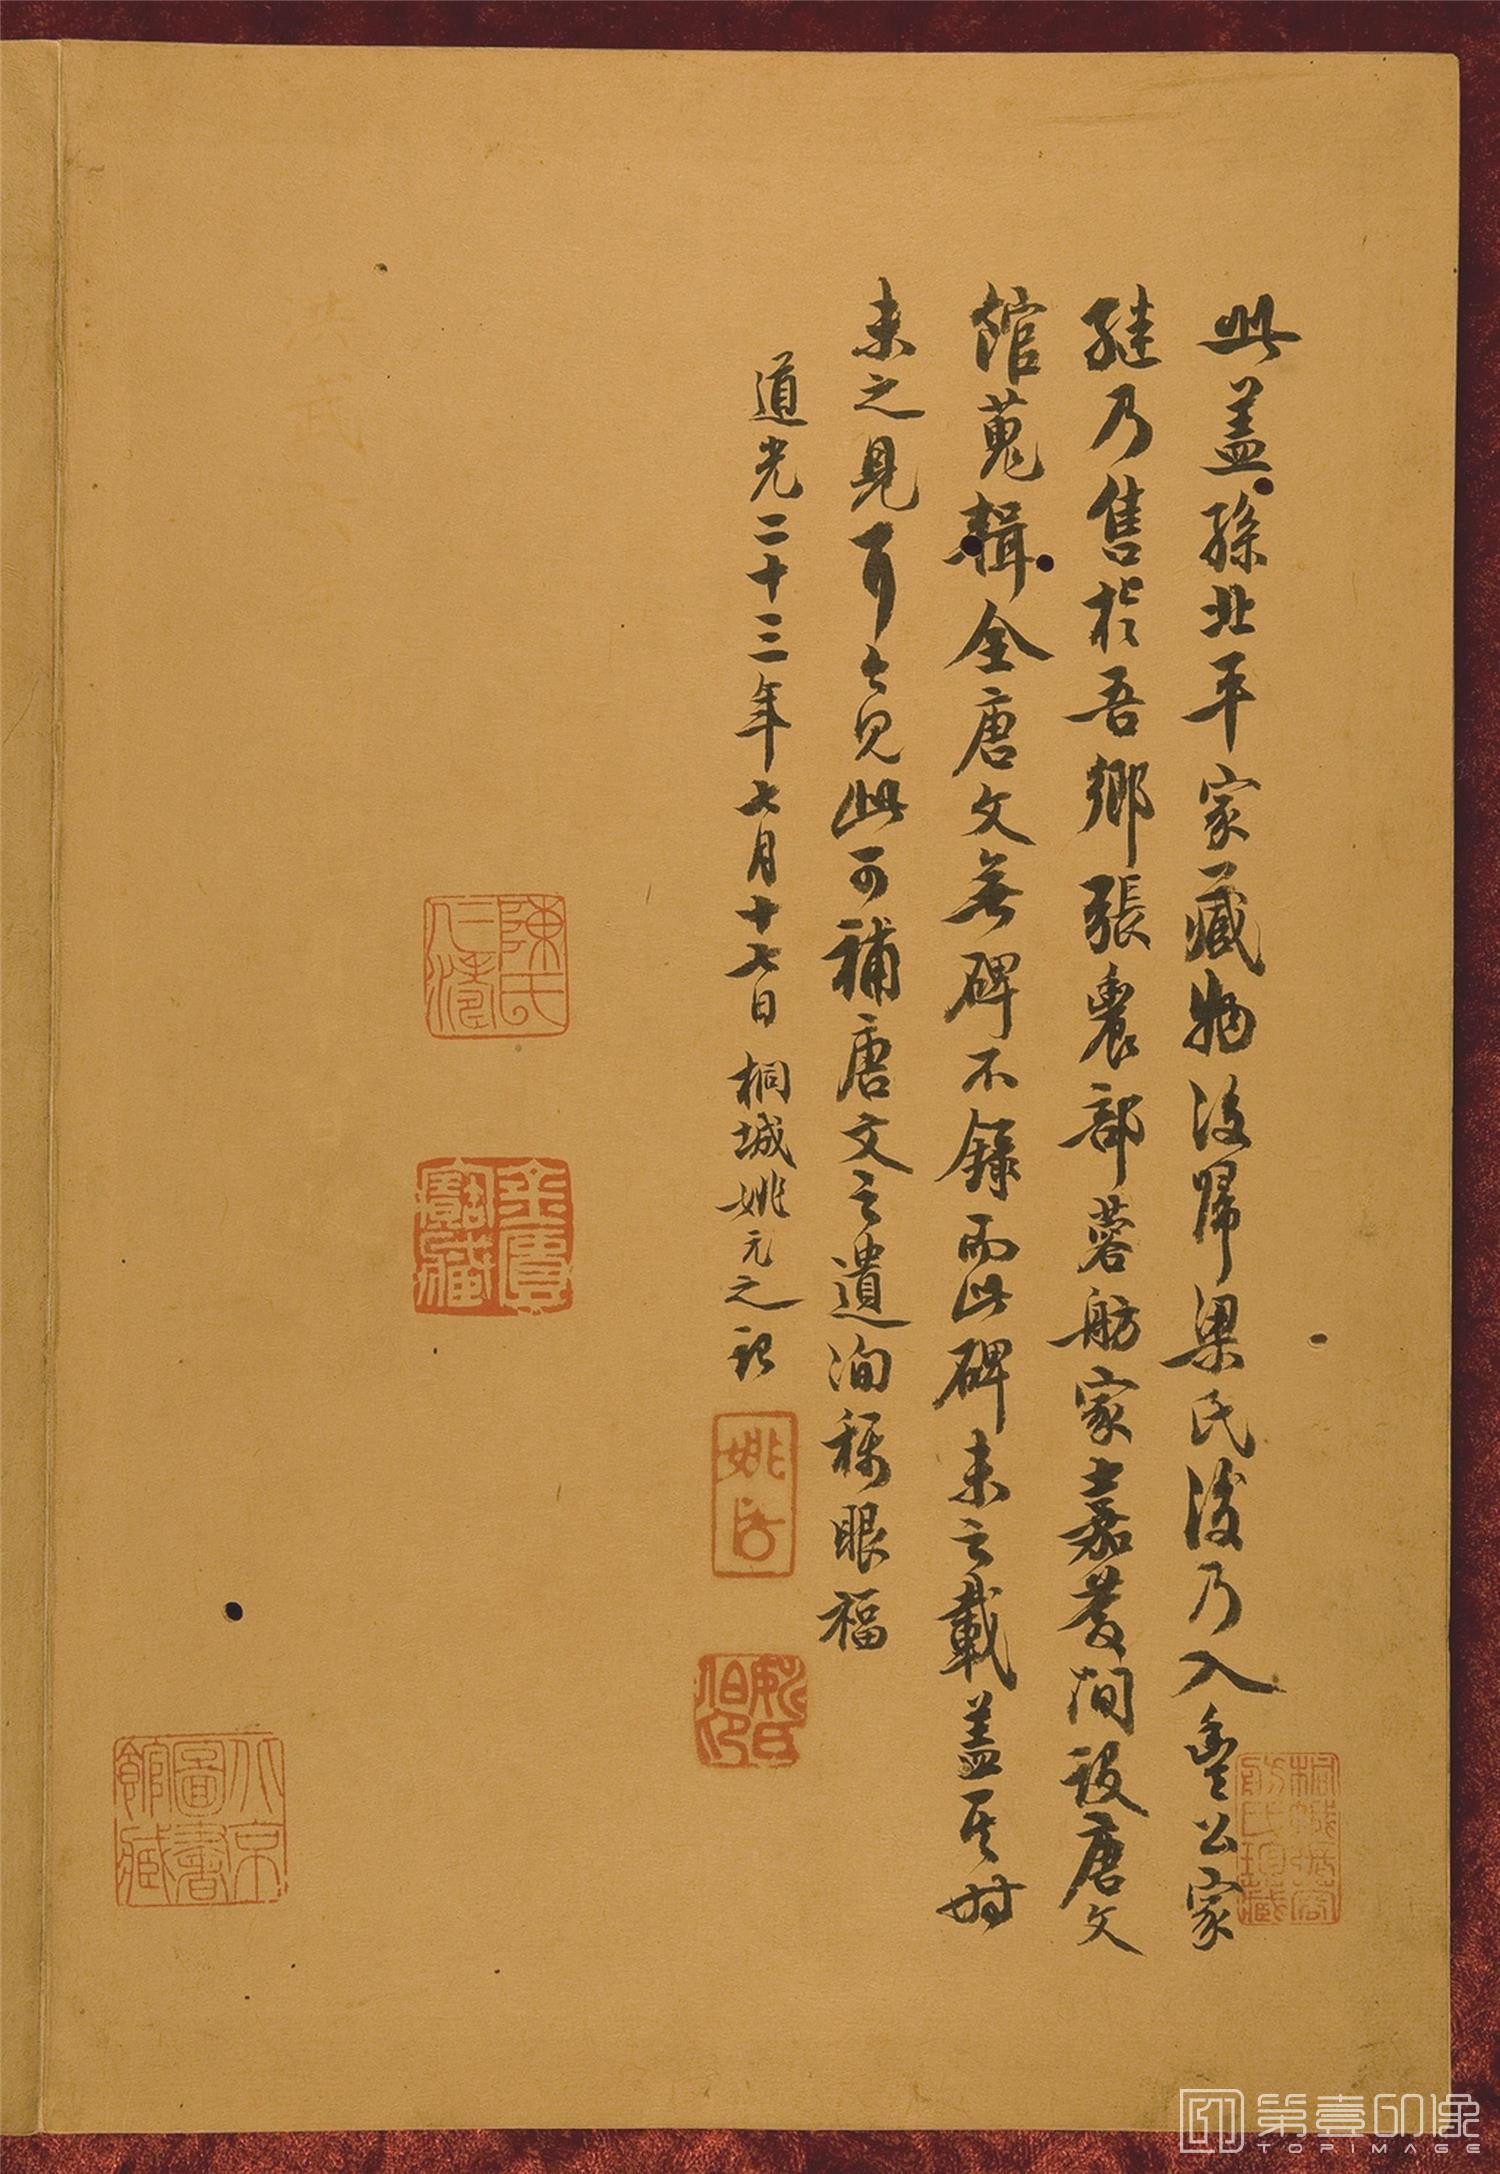 此盖孫北平家藏物後歸梁氏後乃入豊公家
継乃售於吾鄉張農部蓉舫家嘉慶間設唐文
館蒐輯全唐文無碑不錄而此碑未之載盖其时
未之見耳今見此可補唐文之遺洵稱眼福
道光二十三年七月十七日桐城姚元之記
姚
姚氏伯印
陳氏
仁濤
金匱
寶藏
北京
圖書
館藏
桐城張
氏珍藏
第壹印像
TOPIMAGE